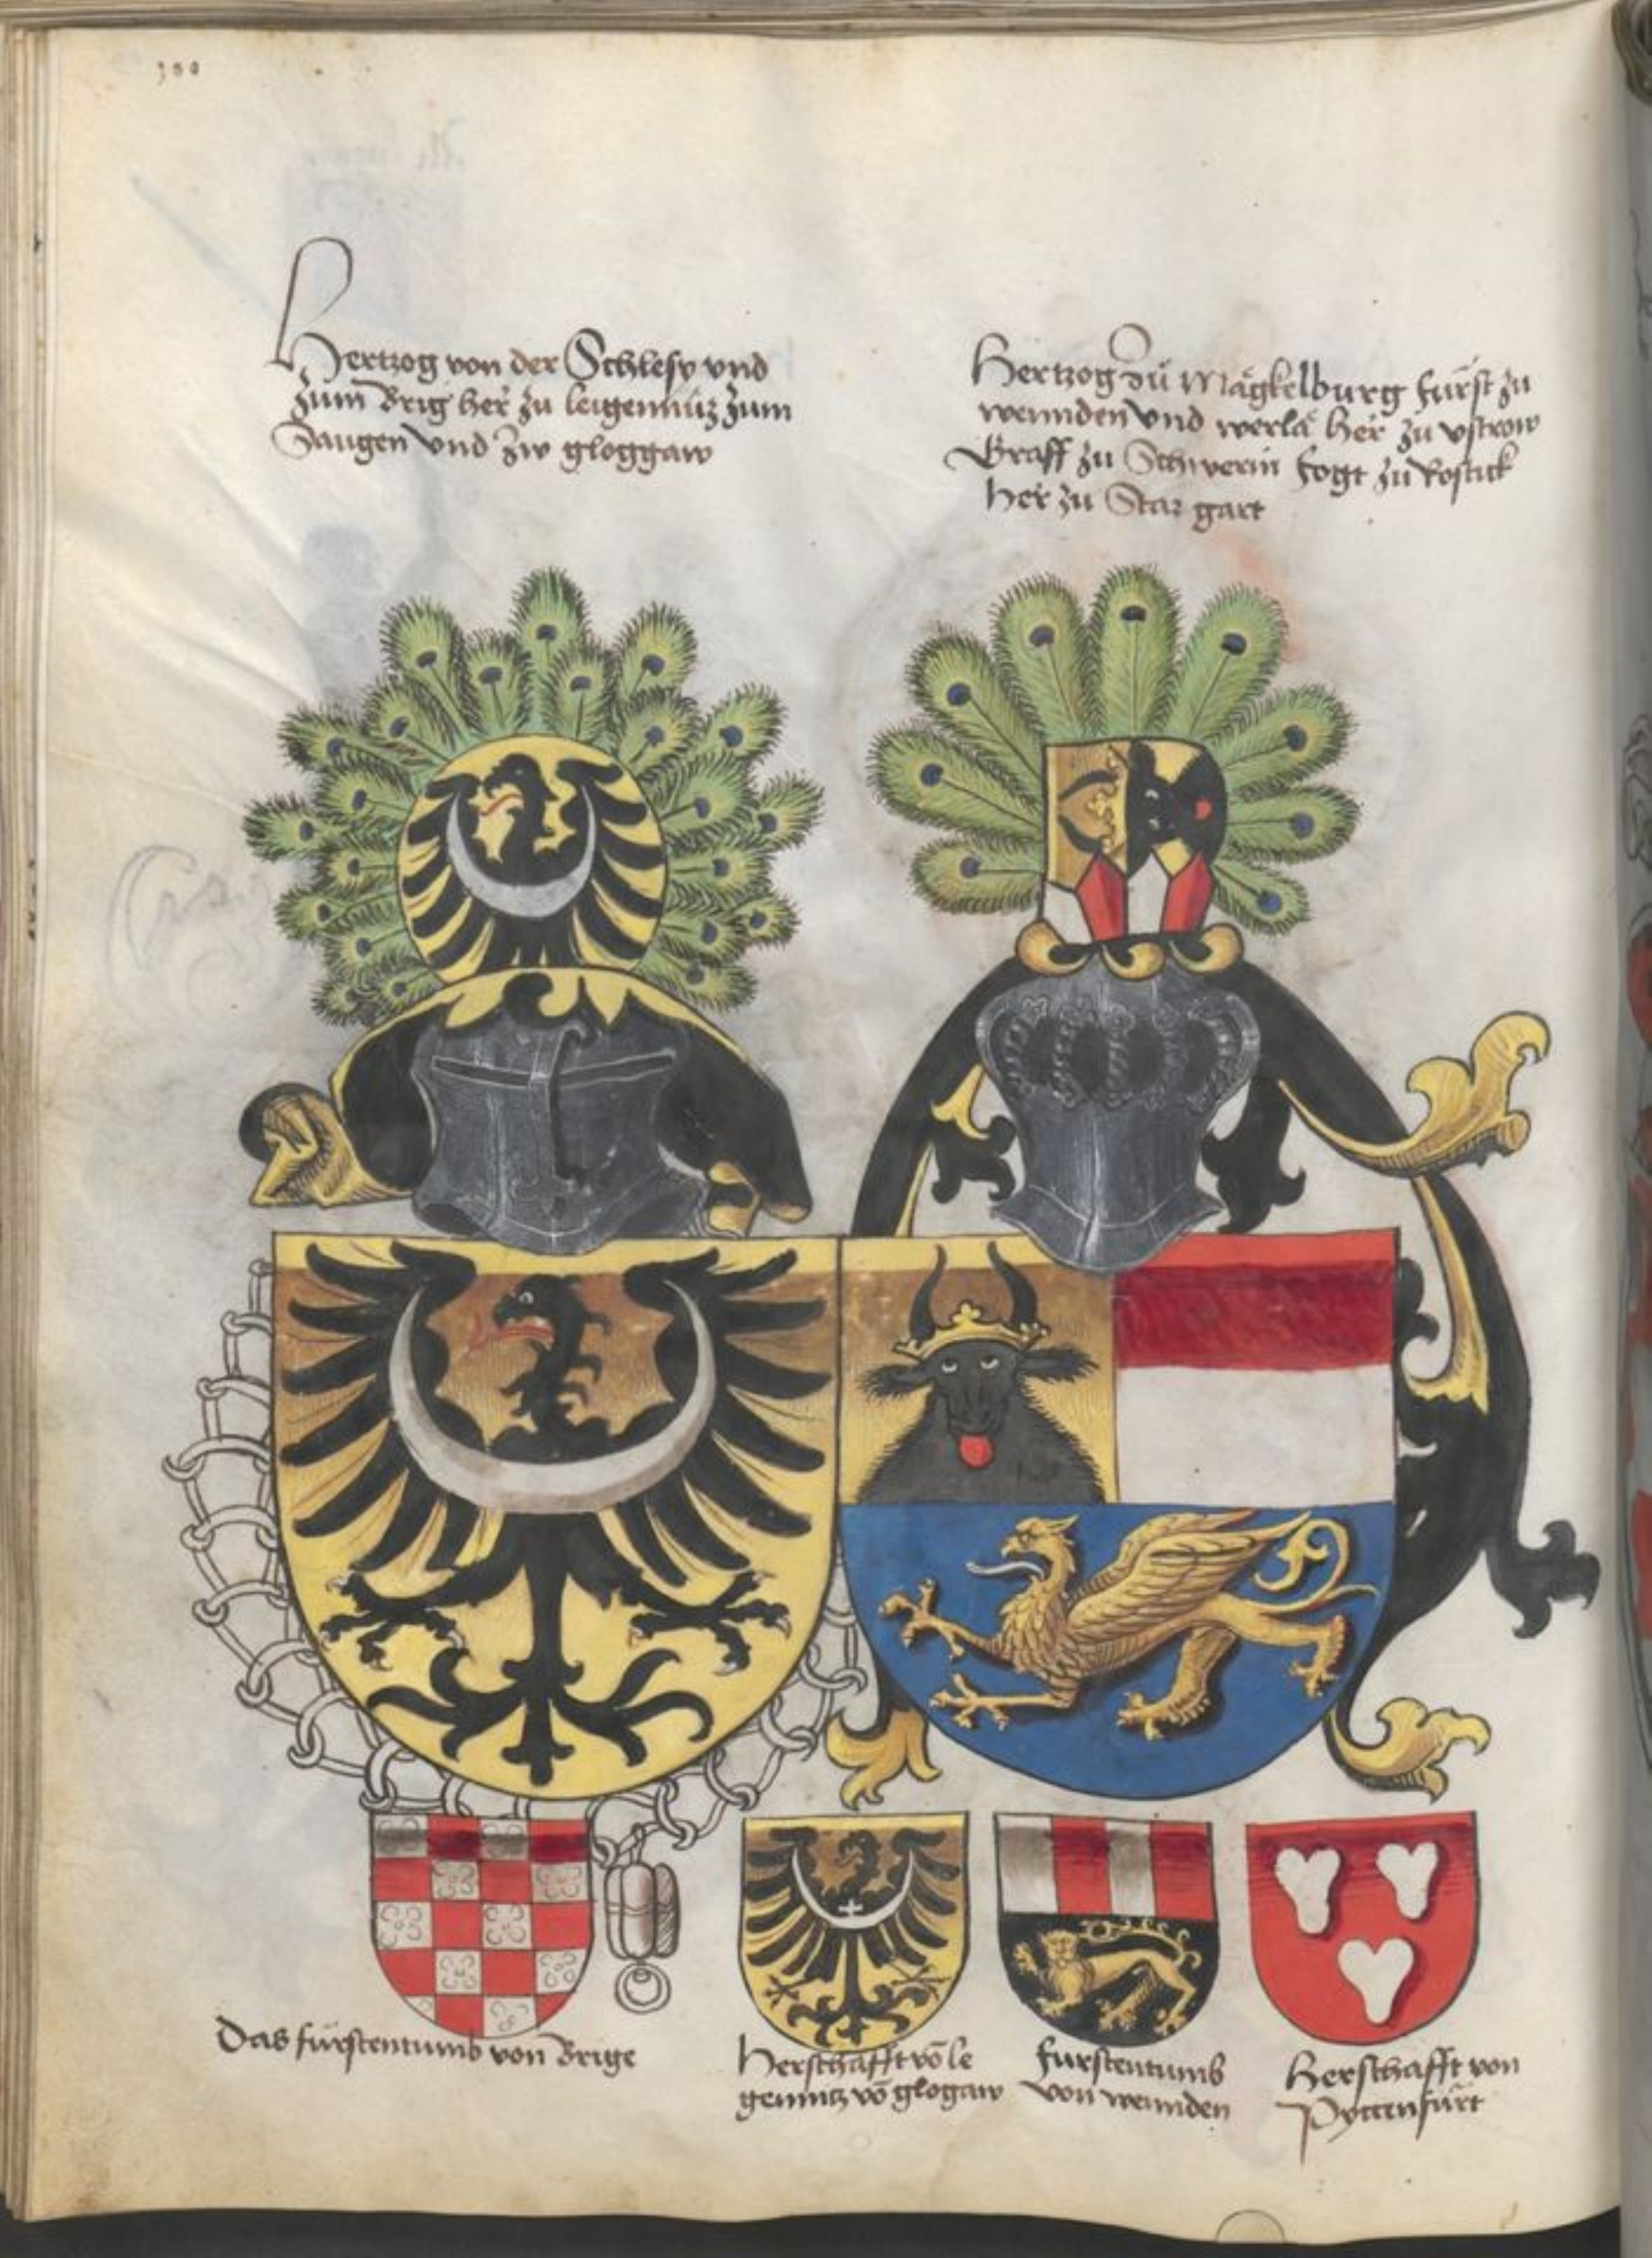 Hertzog von der Schlesy vnd
zum Brig her zu leigennitz zum
Saugen vnd zw gloggaw
Hertzog zu Mägkelburg fürst zu
wennden vnd werla her zu vstrow
Graff zu Schwerin fogt zu Rostick
her zu Stargart
Das fürstentumb von Brige
Herschafft vō le
gennitz vō glogaw
furstentumb
von wennden
Herschafft von